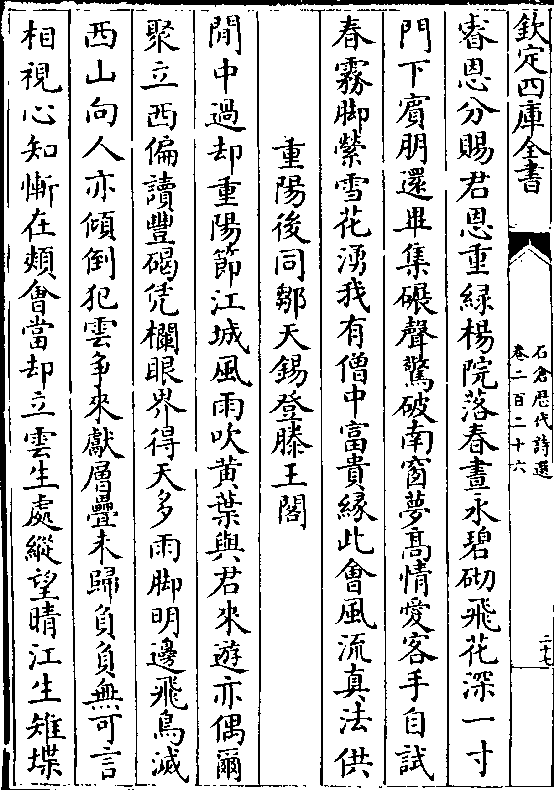 欽定四庫全書
石倉歴代詩選
卷二百二十六
二十七
睿恩分賜君恩重緑楊院落春晝永碧砌飛花深一寸
門下賓朋還畢集碾聲驚破南窗夢髙情愛客手自試
春霧脚縈雪花湧我有僧中富貴縁此會風流真法供
重陽後同鄒天錫登滕王閣
閒中過却重陽節江城風雨吹黄葉與君來遊亦偶爾
聚立西偏讀豐碣凭欄眼界得天多雨脚明邊飛鳥滅
西山向人亦傾倒犯雲争來獻層疊未歸負負無可言
相視心知慚在頰會當却立雲生處縱望晴江生雉堞